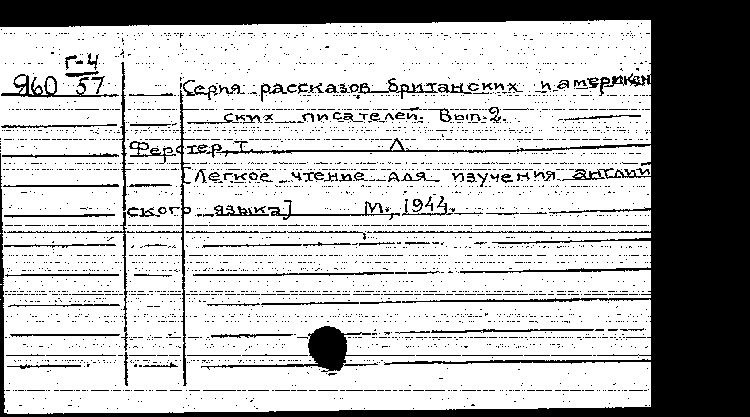 Г-4
Я60 57
Серия рассказов британских и америкен
ских писателей. Вып.2.
Ферстер, Т. Л
[Легкое чтение для изучения англий
ского языка] М., 1944.